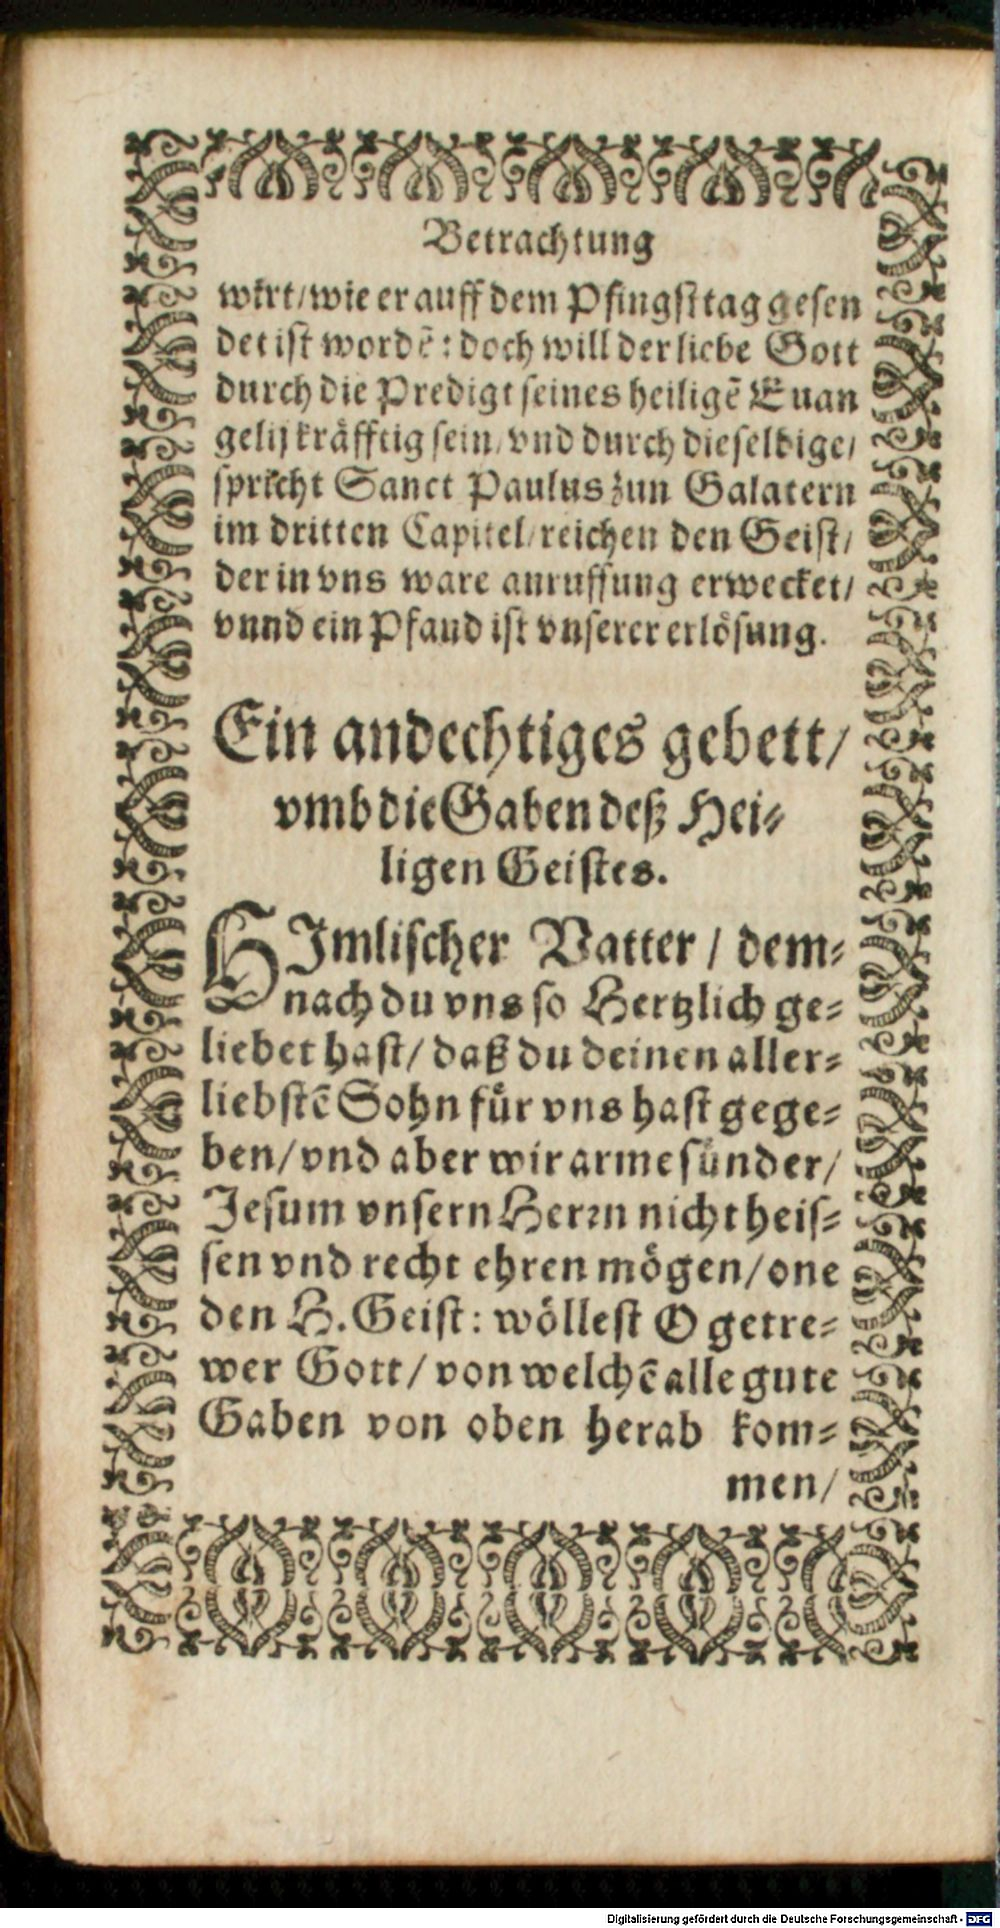 Betrachtung
wirt/wie er auff dem Pfingsttag gesen
det ist wordē: doch will der liebe Gott
durch die Predigt seines heiligē Euan
gelij kräfftig sein/vnd durch dieselbige/
spricht Sanct Paulus zun Galatern
im dritten Capitel/reichen den Geist/
der in vns ware anruffung erwecket/
vnnd ein Pfand ist vnserer erlösung.
Ein andechtiges gebett/
vmb die Gaben deß Hei-
ligen Geistes.
HImlischer Vatter / dem-
nach du vns so Hertzlich ge-
liebet hast/ daß du deinen aller-
liebstē Sohn für vns hast gege-
ben/vnd aber wir arme sünder/
Jesum vnsern Herrn nicht heis-
sen vnd recht ehren mögen/one
den H. Geist: wöllest O getre-
wer Gott/ von welchē alle gute
Gaben von oben herab kom-
men/
Digitalisierung gefördert durch die Deutsche Forschungsgemeinschaft - DFG